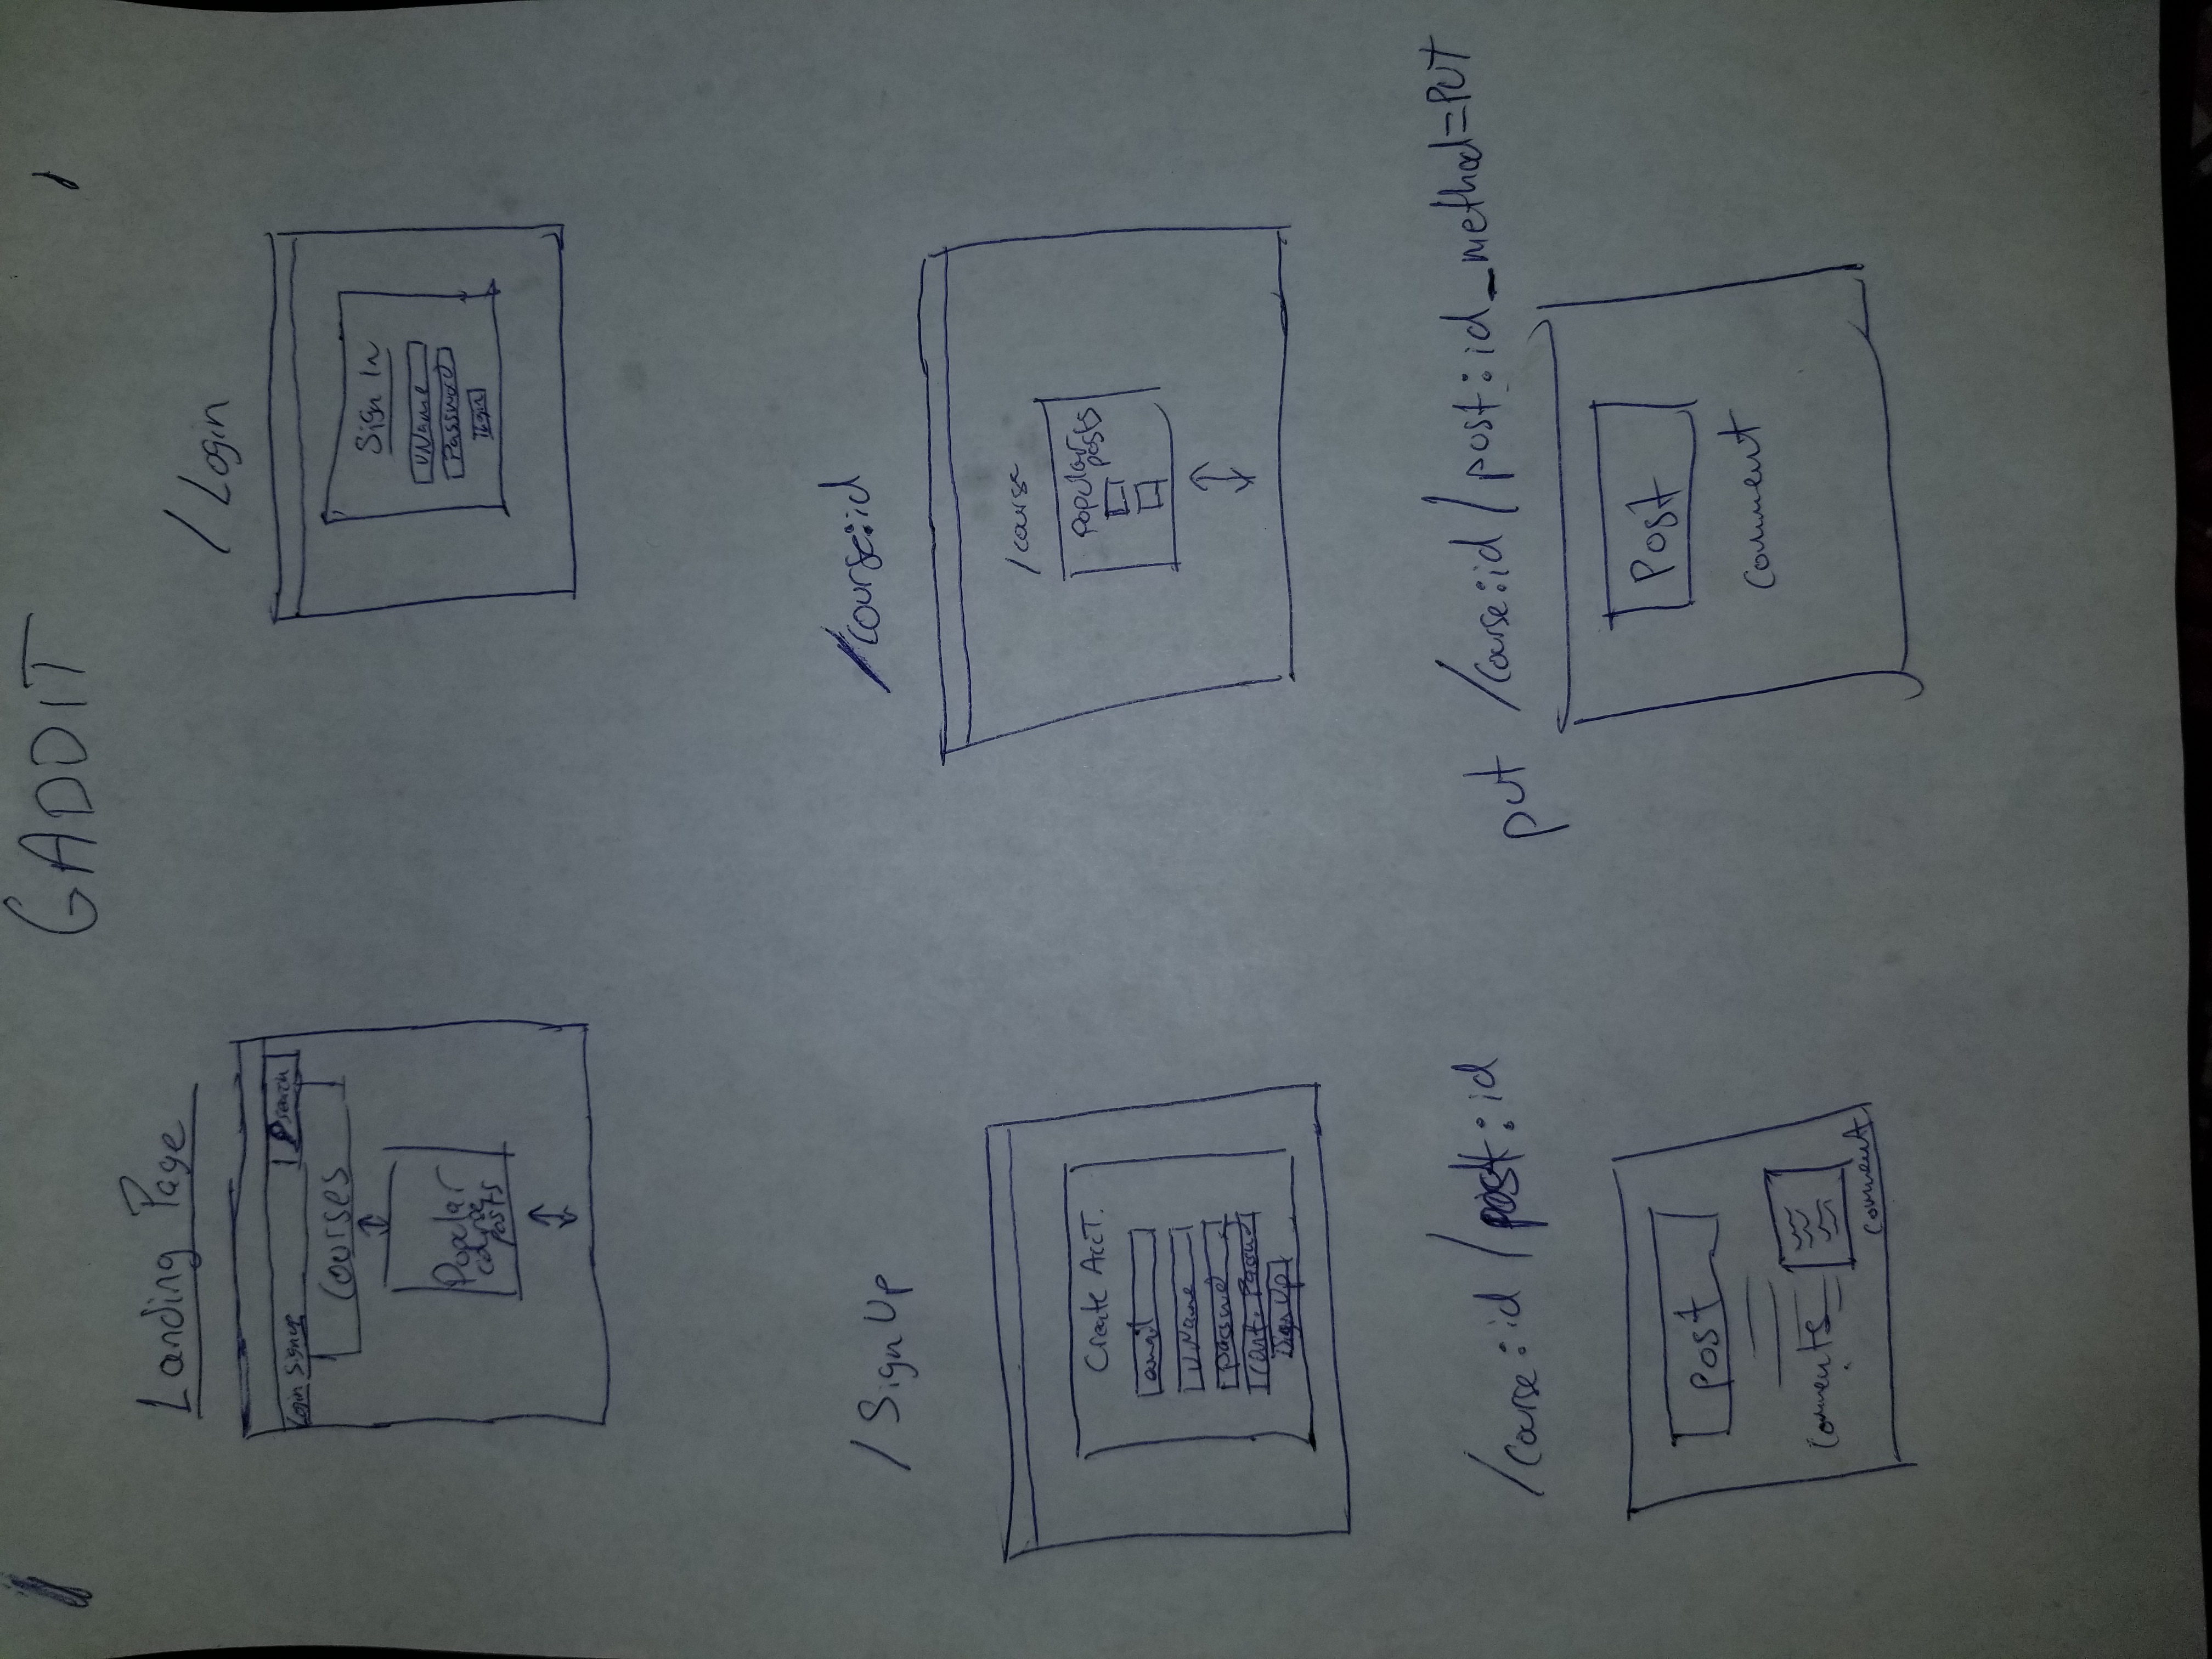 GADDIT
Landing Page
Login Signup
Search
Courses
Popular
course
posts
/ Login
Sign In
UName
Password
login
/ Sign Up
Create AccT.
email
UName
Password
Conf. Passwd
Sign Up
/course:id
/course
popular
posts
/course:id /post:id
post
comments
comment
put /course:id /post:id_method=PUT
Post
comment